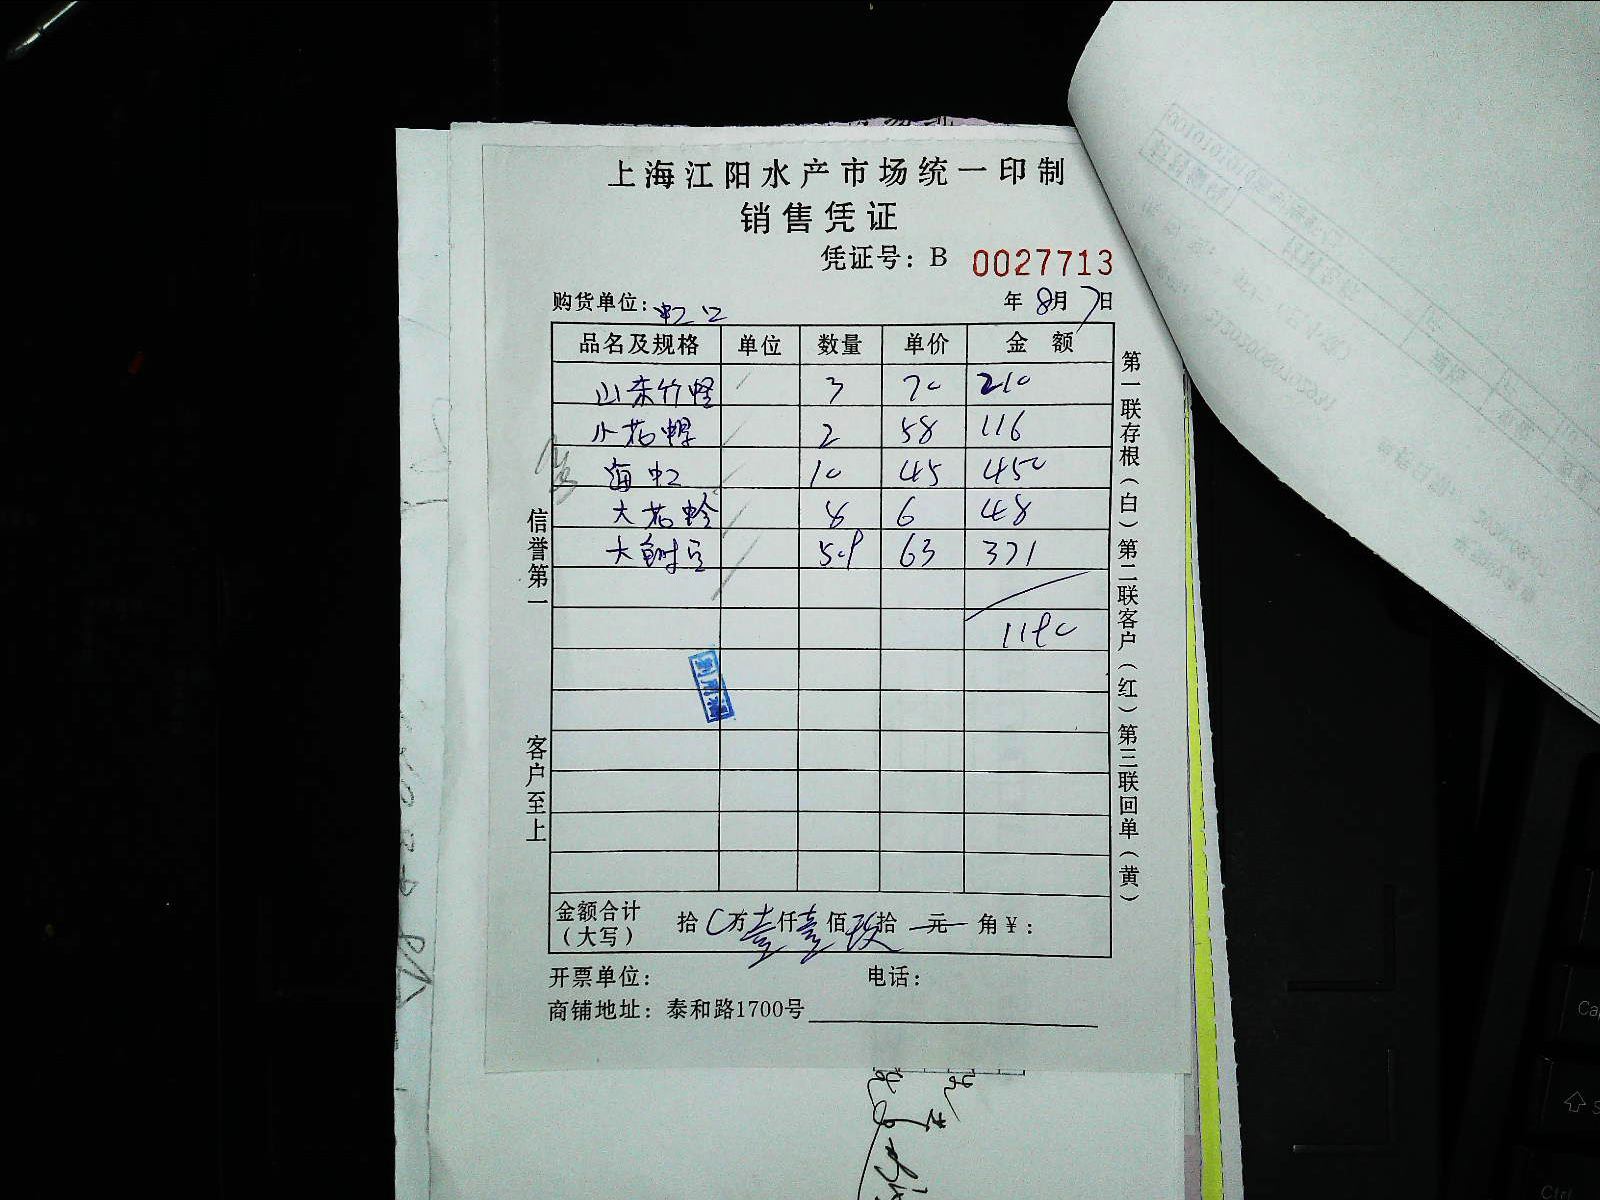 上海江阳水产市场统一印制
销售凭证
凭证号：B 0027713
购货单位：虹口 年 8月 7日
品名及规格 单位 数量 单价 金额
山东竹蛏 3 70 210
小花螺 2 58 116
海虹 10 45 450
大花蛤 8 6 48
大鲍 5.9 63 371
1190
金额合计（大写） 拾 万壹仟壹佰玖拾 元 角￥：
开票单位： 电话：
商铺地址：泰和路1700号
信誉第一
客户至上
第一联存根（白）第二联客户（红）第三联回单（黄）